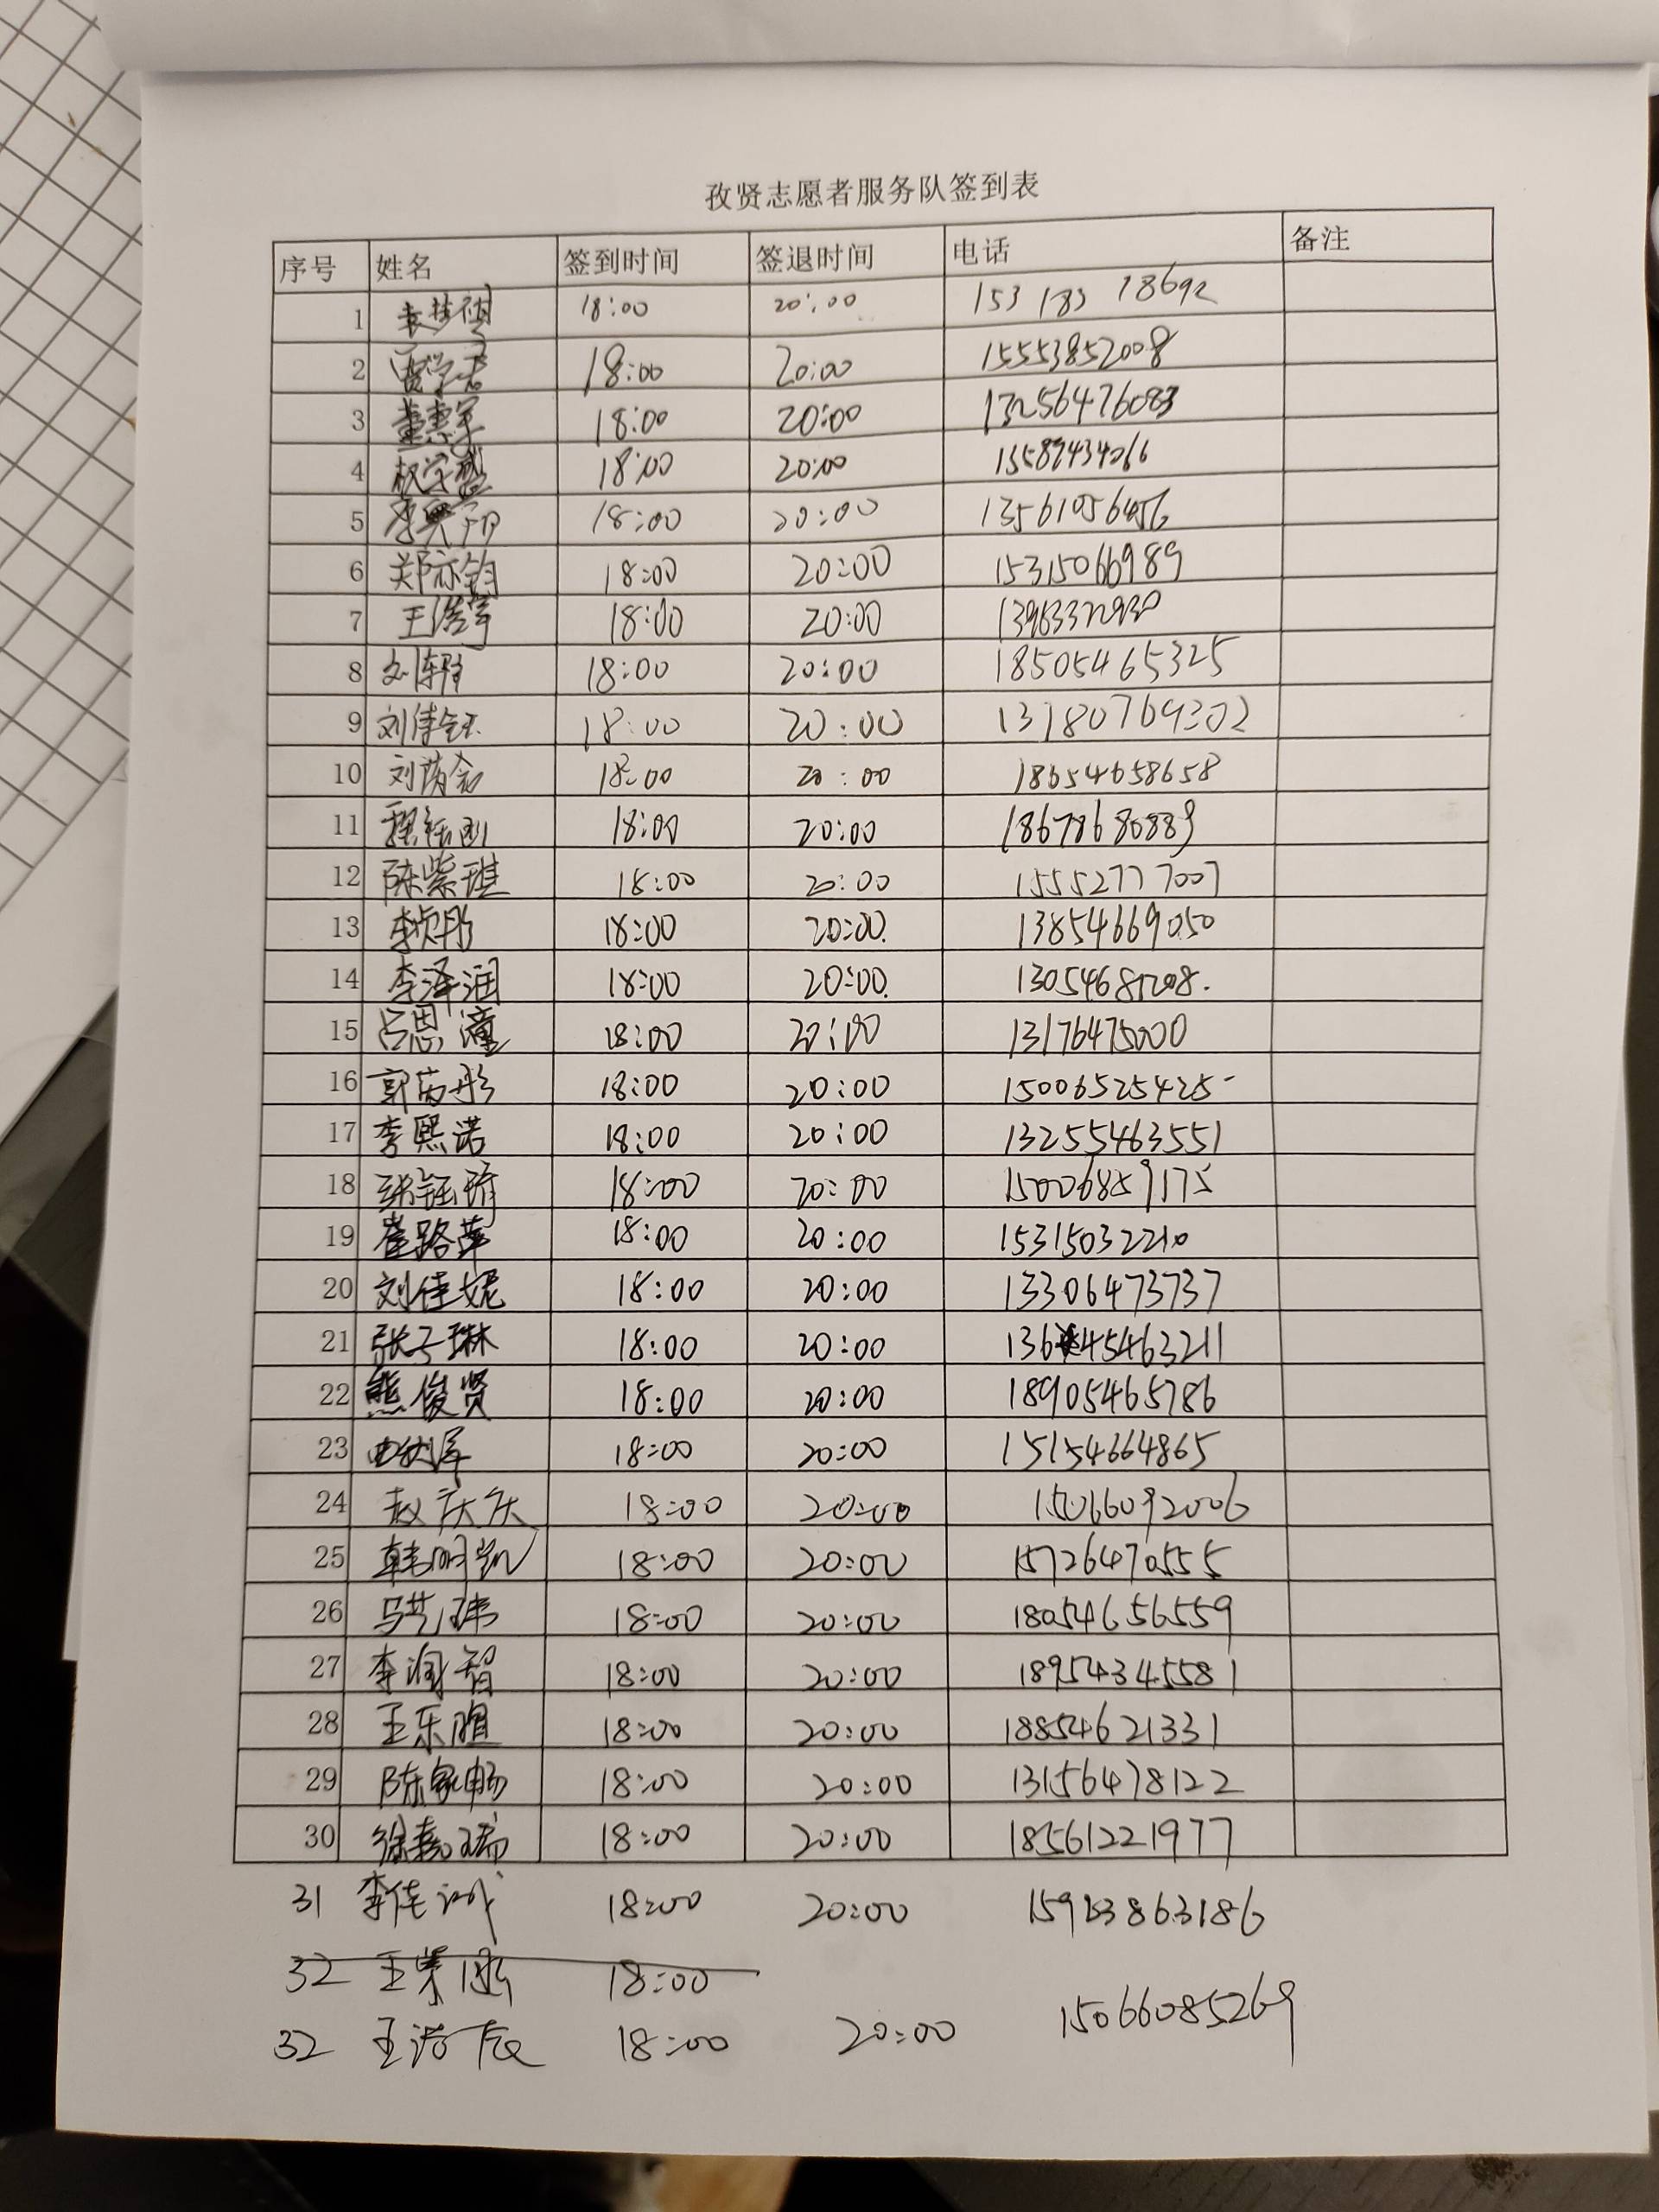 孜贤志愿者服务队签到表
序号 姓名 签到时间 签退时间 电话 备注
1 18:00 20:00 153 183 18692
2 贾学君 18:00 20:00 15553852008
3 董惠军 18:00 20:00 13256476083
4 18:00 20:00
5 18:00 20:00 13561056456
6 郑亦钧 18:00 20:00 15315066989
7 王浩宇 18:00 20:00
8 18:00 20:00 18505465325
9 刘倖钰 18:00 20:00 13780769302
10 刘荫含 18:00 20:00 18654658658
11 18:00 20:00 18678680889
12 陈紫琪 18:00 20:00 15552777007
13 李贞彤 18:00 20:00 13854669050
14 李泽润 18:00 20:00
15 吕思潼 18:00 20:00 13176475000
16 郭芮彤 18:00 20:00 15006525425
17 李熙诺 18:00 20:00 13255463551
18 张钰琦 18:00 20:00 15006859175
19 崔路萍 18:00 20:00 15315032210
20 刘佳妮 18:00 20:00 13306473737
21 张子琳 18:00 20:00 13645463211
22 熊俊贤 18:00 20:00 18905465786
23 18:00 20:00 15154664865
24 赵庆庆 18:00 20:00 15066092006
25 韩明凯 18:00 20:00 15726470555
26 马艺玮 18:00 20:00 18054656559
27 李润智 18:00 20:00 18954345581
28 王乐暄 18:00 20:00 18854621331
29 陈家畅 18:00 20:00 13156478122
30 徐嘉瑞 18:00 20:00 18561221977
31 李佳诚 18:00 20:00
32 18:00
32 王诺辰 18:00 20:00 15066085269